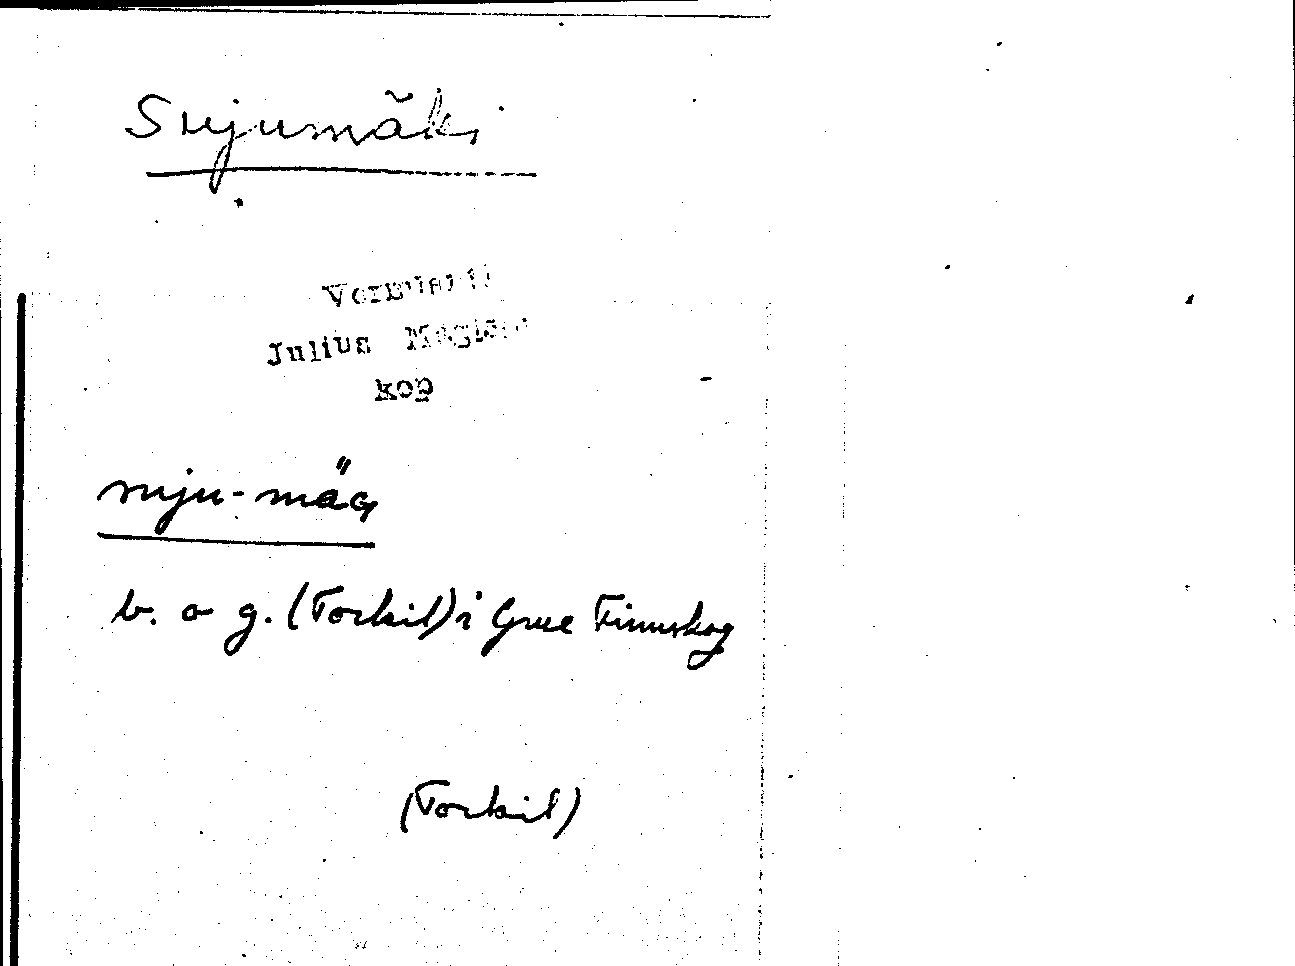 Sujumäki
Vermlanti
Julius Mägiste
kop
suju-mäɢ
b. o g. (Torkil) i Grue Finnskog
(Torkil)